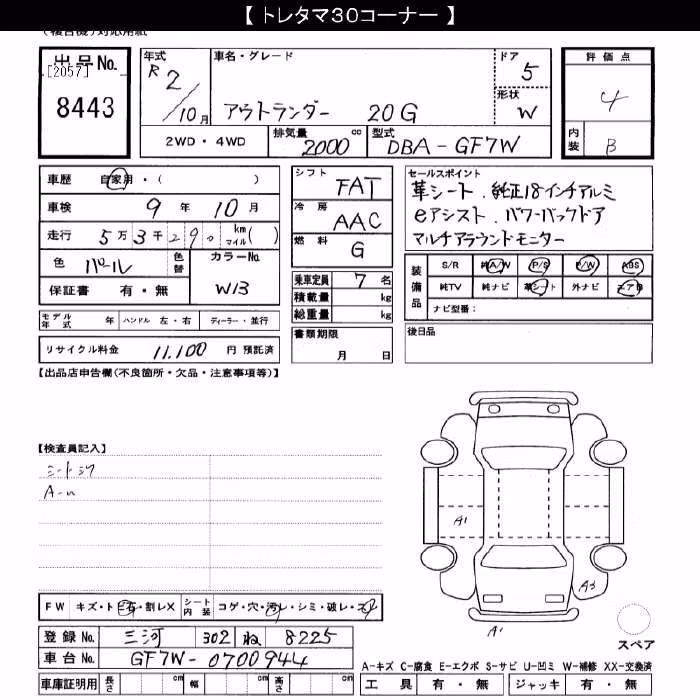 【 トレタマ30コーナー 】
(複合機)対応用紙
出品No.
[2057]
8443
年式 R2/10月
車名・グレード
アウトランダー 20G
ドア 5
形状 W
評価点 4
内装 B
2WD・4WD
排気量 2000 cc
型式 DBA-GF7W
車歴 自家用・( )
車検 9年10月
走行 5万3千290 km マイル( )
色 パール
色替
カラーNo. W13
保証書 有・無
シフト FAT
冷房 AAC
燃料 G
乗車定員 7名
積載量 kg
総重量 kg
セールスポイント
革シート.純正18インチアルミ
eアシスト.パワーバックドア
マルチアラウンドモニター
装備品
S/R 純A/W P/S P/W ABS
純TV 純ナビ 革シート 外ナビ エアB
ナビ型番:
モデル年式 年 ハンドル 左・右 ディーラー・並行
書類期限 月 日
後日品
リサイクル料金 11,100 円 預託済
【出品店申告欄(不良箇所・欠品・注意事項等)】
【検査員記入】
シートシワ
A1
A3
A1
FW キズ・トビ石・割レX シート内装 コゲ・穴・汚レ・シミ・破レ・スレ
スペア
登録No. 三河 302 ね 8225
車台No. GF7W-0700944
A-キズ C-腐食 E-エクボ S-サビ U-凹ミ W-補修 XX-交換済
車庫証明用 長さ cm 幅 cm 高さ cm
工具 有・無 ジャッキ 有・無